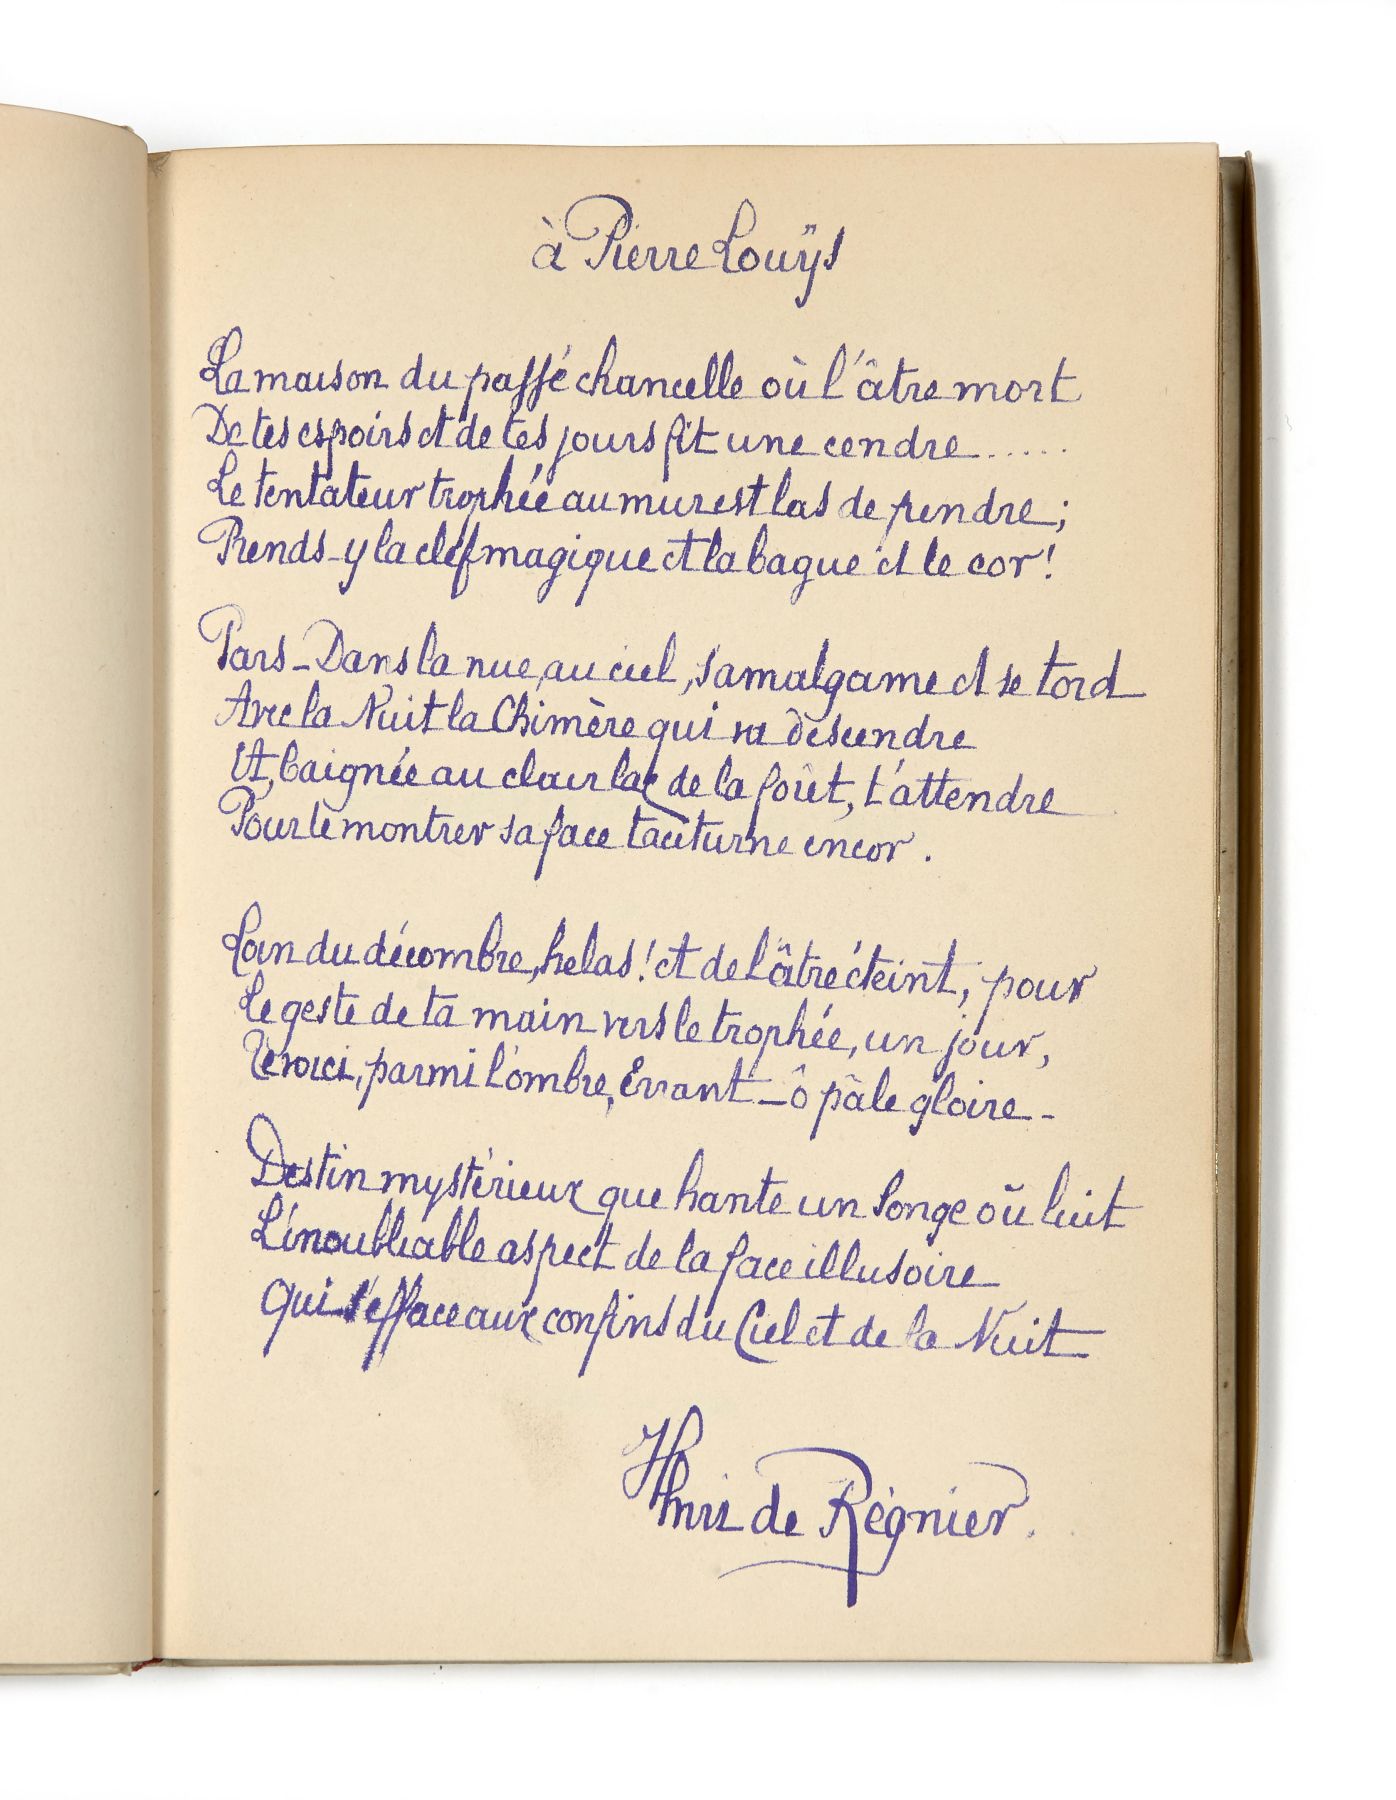 à Pierre Louÿs
La maison du passé chancelle où l'âtre mort
De tes espoirs et de tes jours fit une cendre......
Le tentateur trophée au mur est las de pendre;
Prends-y la clef magique et la bague et le cor!
Pars - Dans la nue, au ciel, s'amalgame et se tord
Avec la Nuit la Chimère qui va descendre
Et, baignée au clair lac de la forêt, t'attendre
Pour te montrer sa face taciturne encor.
Loin du décombre, helas! et de l'âtre éteint, pour
Le geste de ta main vers le trophée, un jour,
Te voici, parmi l'ombre, Errant - ô pâle gloire -
Destin mystérieux que hante un Songe où luit
L'inoubliable aspect de la face illusoire
Qui s'efface aux confins du Ciel et de la Nuit
Henri de Régnier.